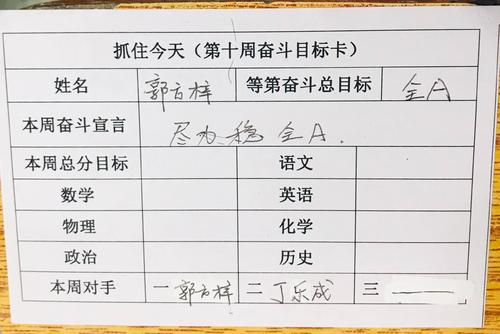 抓住今天（第十周奋斗目标卡）
姓名 郭方梓 等第奋斗总目标 全A
本周奋斗宣言 尽力稳全A.
本周总分目标 语文
数学 英语
物理 化学
政治 历史
本周对手 一郭方梓 二丁乐成 三